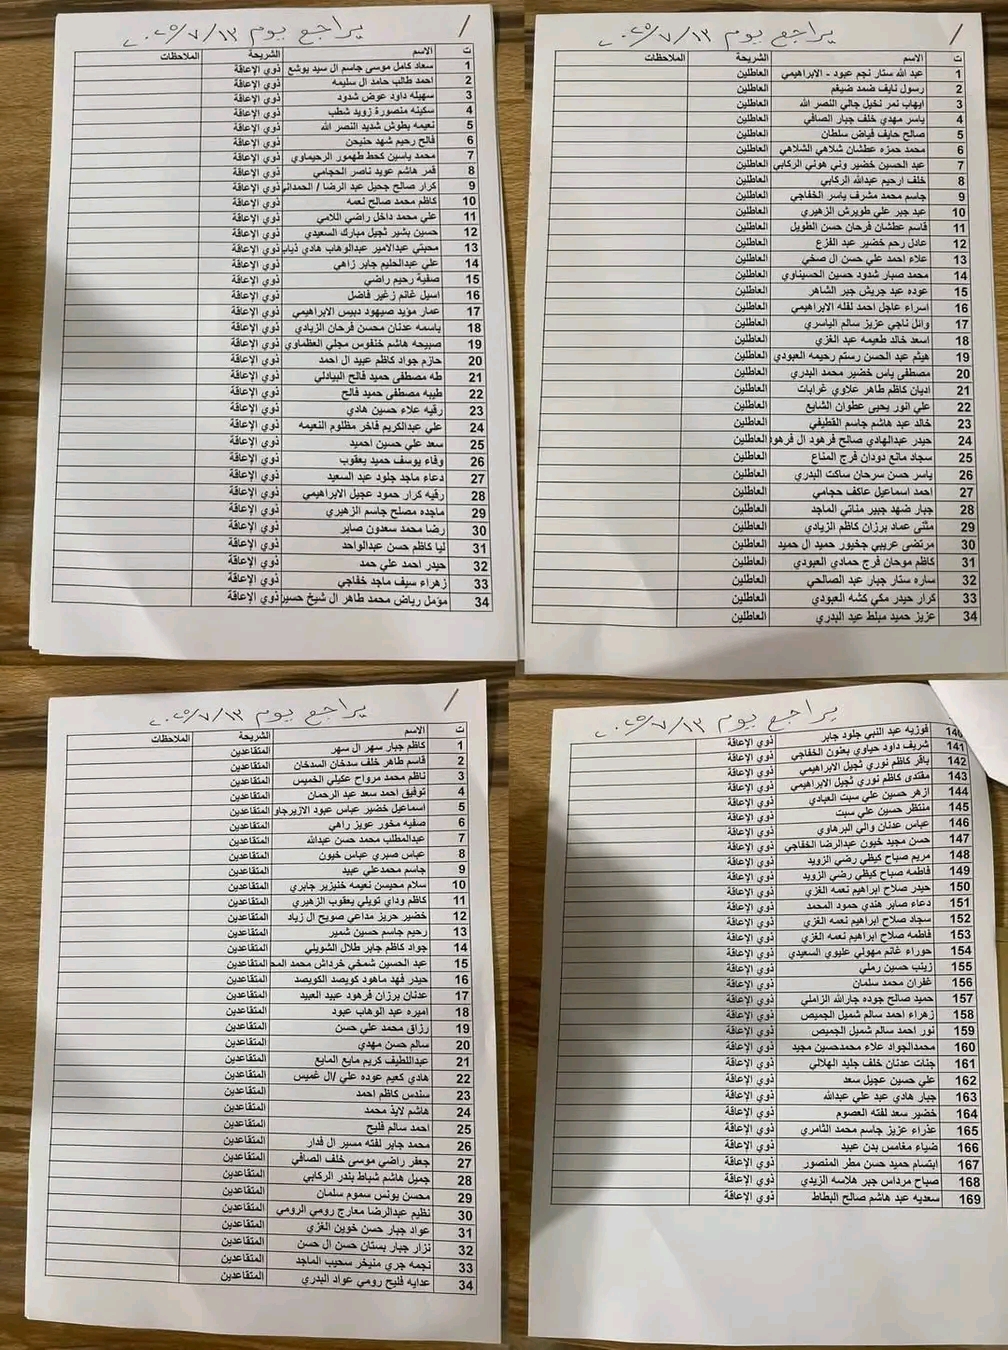 يراجع يوم ٢٠٢٥/٧/١٣
ت الاسم الشريحة الملاحظات
1 سعاد كامل موسى جاسم ال سيد يوشع ذوي الإعاقة
2 احمد طالب حامد ال سليمه ذوي الإعاقة
3 سهيله داود عوض شدود ذوي الإعاقة
4 سكينه منصورة زويد شطب ذوي الإعاقة
5 نعيمه بطوش شديد النصر الله ذوي الإعاقة
6 فالح رحيم شهد حنيحن ذوي الإعاقة
7 محمد ياسين كحط طهمور الرحيماوي ذوي الإعاقة
8 قمر هاشم عويد ناصر الحجامي ذوي الإعاقة
9 كرار صالح جحيل عبد الرضا / الحمداني ذوي الإعاقة
10 كاظم محمد صالح نعمه ذوي الإعاقة
11 علي محمد داخل راضي اللامي ذوي الإعاقة
12 حسين بشير ثجيل مبارك السعيدي ذوي الإعاقة
13 مجتبي عبدالامير عبدالوهاب هادي ذياب ذوي الإعاقة
14 علي عبدالحليم جابر زاهي ذوي الإعاقة
15 صفية رحيم راضي ذوي الإعاقة
16 اسيل غانم زغير فاضل ذوي الإعاقة
17 عمار مؤيد صيهود دبيس الابراهيمي ذوي الإعاقة
18 باسمه عدنان محسن فرحان الزيادي ذوي الإعاقة
19 صبيحه هاشم خنفوس مجلي العظماوي ذوي الإعاقة
20 حازم جواد كاظم عبيد ال احمد ذوي الإعاقة
21 طه مصطفى حميد فالح البيادلي ذوي الإعاقة
22 طيبه مصطفى حميد فالح ذوي الإعاقة
23 رقيه علاء حسين هادي ذوي الإعاقة
24 علي عبدالكريم فاخر مظلوم النعيمه ذوي الإعاقة
25 سعد علي حسين احميد ذوي الإعاقة
26 وفاء يوسف حميد يعقوب ذوي الإعاقة
27 دعاء ماجد جلود عبد السعيد ذوي الإعاقة
28 رقيه كرار حمود عجيل الابراهيمي ذوي الإعاقة
29 ماجده مصلح جاسم الزهيري ذوي الإعاقة
30 رضا محمد سعدون صابر ذوي الإعاقة
31 ليا كاظم حسن عبدالواحد ذوي الإعاقة
32 حيدر احمد علي حمد ذوي الإعاقة
33 زهراء سيف ماجد خفاجي ذوي الإعاقة
34 مؤمل رياض محمد طاهر ال شيخ حسين ذوي الإعاقة
يراجع يوم ٢٠٢٥/٧/١٣
ت الاسم الشريحة الملاحظات
1 عبد الله ستار نجم عبود - الابراهيمي العاطلين
2 رسول نايف ضمد ضيغم العاطلين
3 ايهاب نمر نخيل جالي النصر الله العاطلين
4 ياسر مهدي خلف جبار الصافي العاطلين
5 صالح حايف فياض سلطان العاطلين
6 محمد حمزه عطشان شلاهي الشلاهي العاطلين
7 عبد الحسين خضير وني هوني الركابي العاطلين
8 خلف ارحيم عبدالله الركابي العاطلين
9 جاسم محمد مشرف ياسر الخفاجي العاطلين
10 عبد جبر علي طويرش الزهيري العاطلين
11 قاسم عطشان فرحان حسن الطويل العاطلين
12 عادل رحم خضير عبد الفزع العاطلين
13 علاء احمد علي حسن ال صخي العاطلين
14 محمد صبار شدود حسين الحسيناوي العاطلين
15 عوده عبد جريش جبر الشاهر العاطلين
16 اسراء عاجل احمد لفله الابراهيمي العاطلين
17 وائل ناجي عزيز سالم الياسري العاطلين
18 اسعد خالد طعيمه عبد الغزي العاطلين
19 هيثم عبد الحسن رستم رحيمه العبودي العاطلين
20 مصطفى ياس خضير محمد البدري العاطلين
21 اديان كاظم طاهر علاوي غرابات العاطلين
22 علي انور يحيى عطوان الشايع العاطلين
23 خالد عبد هاشم جاسم القطيفي العاطلين
24 حيدر عبدالهادي صالح فرهود ال فرهود العاطلين
25 سجاد مانع دودان فرج المناع العاطلين
26 ياسر حسن سرحان ساكت البدري العاطلين
27 احمد اسماعيل عاكف حجامي العاطلين
28 جبار ضهد جبير مناتي الماجد العاطلين
29 مثنى عماد برزان كاظم الزيادي العاطلين
30 مرتضى عريبي جخيور حميد ال حميد العاطلين
31 كاظم موحان فرج حمادي العبودي العاطلين
32 ساره ستار جبار عبد الصالحي العاطلين
33 كرار حيدر مكي كشه العبودي العاطلين
34 عزيز حميد مبلط عيد البدري العاطلين
يراجع يوم ٢٠٢٥/٧/١٣
ت الاسم الشريحة الملاحظات
1 كاظم جبار سهر ال سهر المتقاعدين
2 قاسم طاهر خلف سدخان السدخان المتقاعدين
3 ناظم محمد مرواح عكيلي الخميس المتقاعدين
4 توفيق احمد سعد عبد الرحمان المتقاعدين
5 اسماعيل خضير عباس عبود الازيرجاو المتقاعدين
6 صفيه مخور عويز راهي المتقاعدين
7 عبدالمطلب محمد حسن عبدالله المتقاعدين
8 عباس صبري عباس خيون المتقاعدين
9 جاسم محمدعلي عبيد المتقاعدين
10 سلام محيسن نعيمه خنيزير جابري المتقاعدين
11 كاظم وداي تويلي يعقوب الزهيري المتقاعدين
12 خضير حريز مداعي صويح ال زياد المتقاعدين
13 رحيم جاسم حسين شمير المتقاعدين
14 جواد كاظم جابر طلال الشويلي المتقاعدين
15 عبد الحسين شمخي خرداش محمد المح المتقاعدين
16 حيدر فهد ماهود كويصد الكويصد المتقاعدين
17 عدنان برزان فرهود عبيد العبيد المتقاعدين
18 اميره عبد الوهاب عبود المتقاعدين
19 رزاق محمد علي حسن المتقاعدين
20 سالم حسن مهدي المتقاعدين
21 عبداللطيف كريم مايع المايع المتقاعدين
22 هادي كعيم عوده علي /ال غميس المتقاعدين
23 سندس كاظم احمد المتقاعدين
24 هاشم لايذ محمد المتقاعدين
25 احمد سالم فليح المتقاعدين
26 محمد جابر لفته مسير ال فدار المتقاعدين
27 جعفر راضي موسى خلف الصافي المتقاعدين
28 جميل هاشم شباط بندر الركابي المتقاعدين
29 محسن يونس سموم سلمان المتقاعدين
30 نظيم عبدالرضا معارج رومي الرومي المتقاعدين
31 عواد جبار حسن خوين الغزي المتقاعدين
32 نزار جبار بستان حسن ال حسن المتقاعدين
33 نجمه جري منيخر سحيب الماجد المتقاعدين
34 عدايه فليح رومي عواد البدري المتقاعدين
يراجع يوم ٢٠٢٥/٧/١٣
140 فوزيه عبد النبي جلود جابر ذوي الإعاقة
141 شريف داود حياوي بعنون الخفاجي ذوي الإعاقة
142 باقر كاظم نوري ثجيل الابراهيمي ذوي الإعاقة
143 مقتدى كاظم نوري ثجيل الابراهيمي ذوي الإعاقة
144 ازهر حسين علي سبت العبادي ذوي الإعاقة
145 منتظر حسين علي سبت ذوي الإعاقة
146 عباس عدنان والي البرهاوي ذوي الإعاقة
147 حسن مجيد خيون عبدالرضا الخفاجي ذوي الإعاقة
148 مريم صباح كيظي رضي الزويد ذوي الإعاقة
149 فاطمه صباح كيظي رضي الزويد ذوي الإعاقة
150 حيدر صلاح ابراهيم نعمه الغزي ذوي الإعاقة
151 دعاء صابر هندي حمود المحمد ذوي الإعاقة
152 سجاد صلاح ابراهيم نعمه الغزي ذوي الإعاقة
153 فاطمه صلاح ابراهيم نعمه الغزي ذوي الإعاقة
154 حوراء غانم مهولي عليوي السعيدي ذوي الإعاقة
155 زينب حسين رملي ذوي الإعاقة
156 غفران محمد سلمان ذوي الإعاقة
157 حميد صالح جوده جارالله الزاملي ذوي الإعاقة
158 زهراء احمد سالم شميل الجميص ذوي الإعاقة
159 نور احمد سالم شميل الجميص ذوي الإعاقة
160 محمدالجواد علاء محمدحسين مجيد ذوي الإعاقة
161 جنات عدنان خلف جليد الهلالي ذوي الإعاقة
162 علي حسين عجيل سعد ذوي الإعاقة
163 جبار هادي عبد علي عبدالله ذوي الإعاقة
164 خضير سعد لفته العصوم ذوي الإعاقة
165 عذراء عزيز جاسم محمد الثامري ذوي الإعاقة
166 ضياء مغامس بدن عبيد ذوي الإعاقة
167 ابتسام حميد حسن مطر المنصور ذوي الإعاقة
168 صباح مرداس جبر هلاسه الزيدي ذوي الإعاقة
169 سعديه عبد هاشم صالح البطاط ذوي الإعاقة